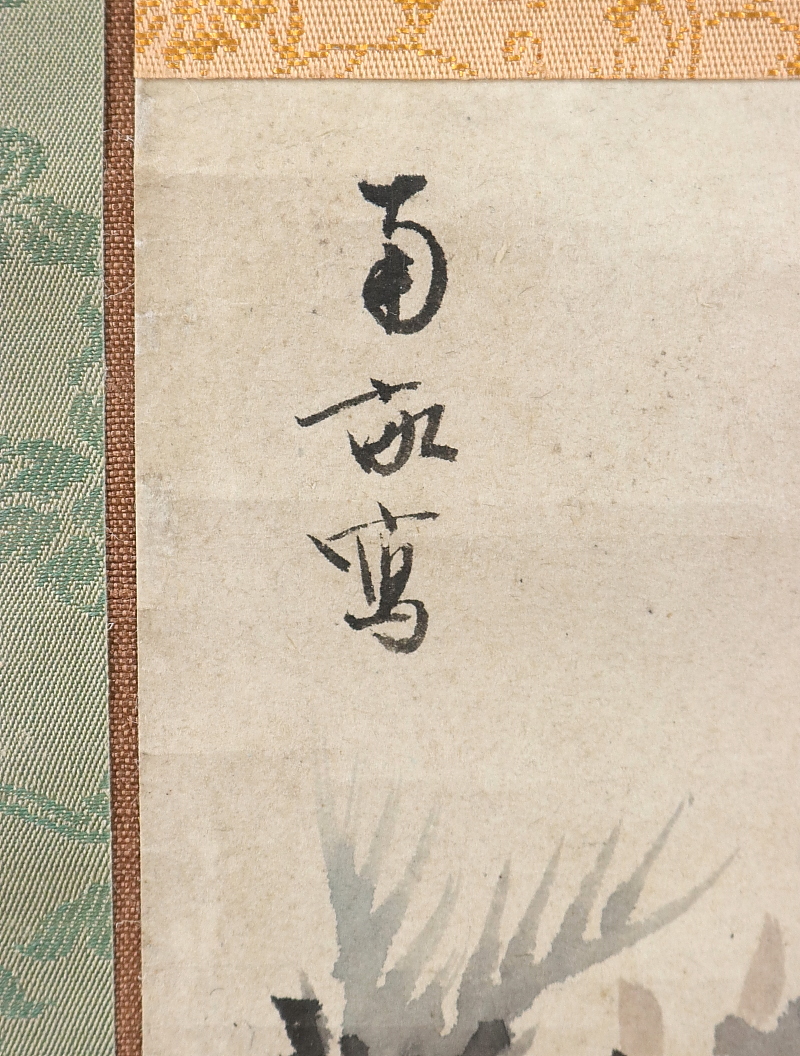 南畝寫